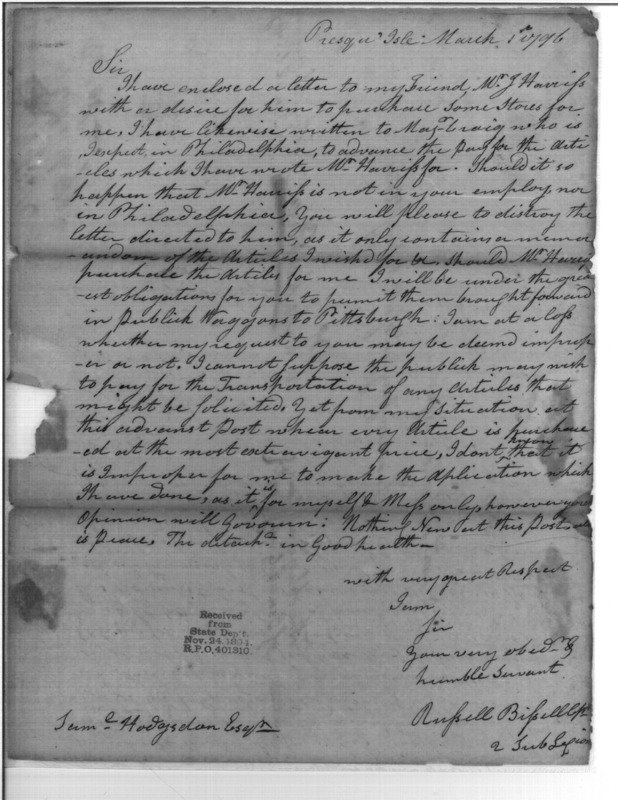 Presqu' Isle March 1st 1796
Sir
I have enclosed a letter to my Friend Mr. J Harriss
with a desire for him to purchase some Stores for
me, I have likewise written to Majr. Craig who is
I expect, in Philadelphia, to advance the Pay for the Arti
-cles which I have wrote Mr. Harriss for. Should it so
happen that Mr. Harriss is not in your employ, nor
in Philadelphia, You will please to distroy the
letter directed to him, as it only contains a memor
-andom of the Articles I wished for &c, should Mr. Harriss
purchase the Articles for me I will be under the grea
-est obligations for you to permit them brought forward
in Publick Waggons to Pittsburgh: I am at a loss
whether my request to you may be deemd improp
-er or not. I cannot suppose the publick may wish
to pay for the Transportation of any Articles that
might be Solicited, Yet from my Situation at
this advanst Post whear evry Article is purchace
-ed at the most extravigant price, I dont that it
is Improper for me to make the Aplication which
I have done, as it is for myself & Mess only, however your
Opinion will Govourn: Nothing New at this Post, all
is Peace. The detacht. in Good health—
with very great Respect
I am
Sir
Your very obedt. &
humble Servant
Russell Bissell Cpt
2 Sub Legion
Received
from
State Dep't.
Nov. 24, 1894.
R.P.O. 401310.
Saml. Hodgsdon Esqr.